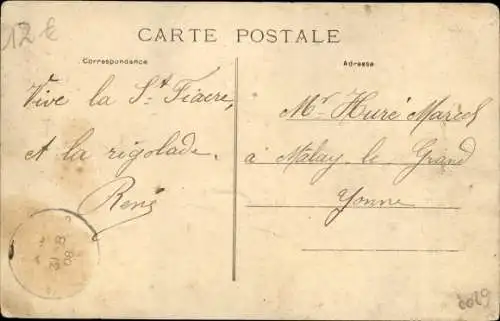 12 €
CARTE POSTALE
Correspondance
Adresse
Vive la St Fiacre,
et la rigolade.
René
Mr. Huré Marcel
à Malay le Grand
Yonne
31-8
08
6029